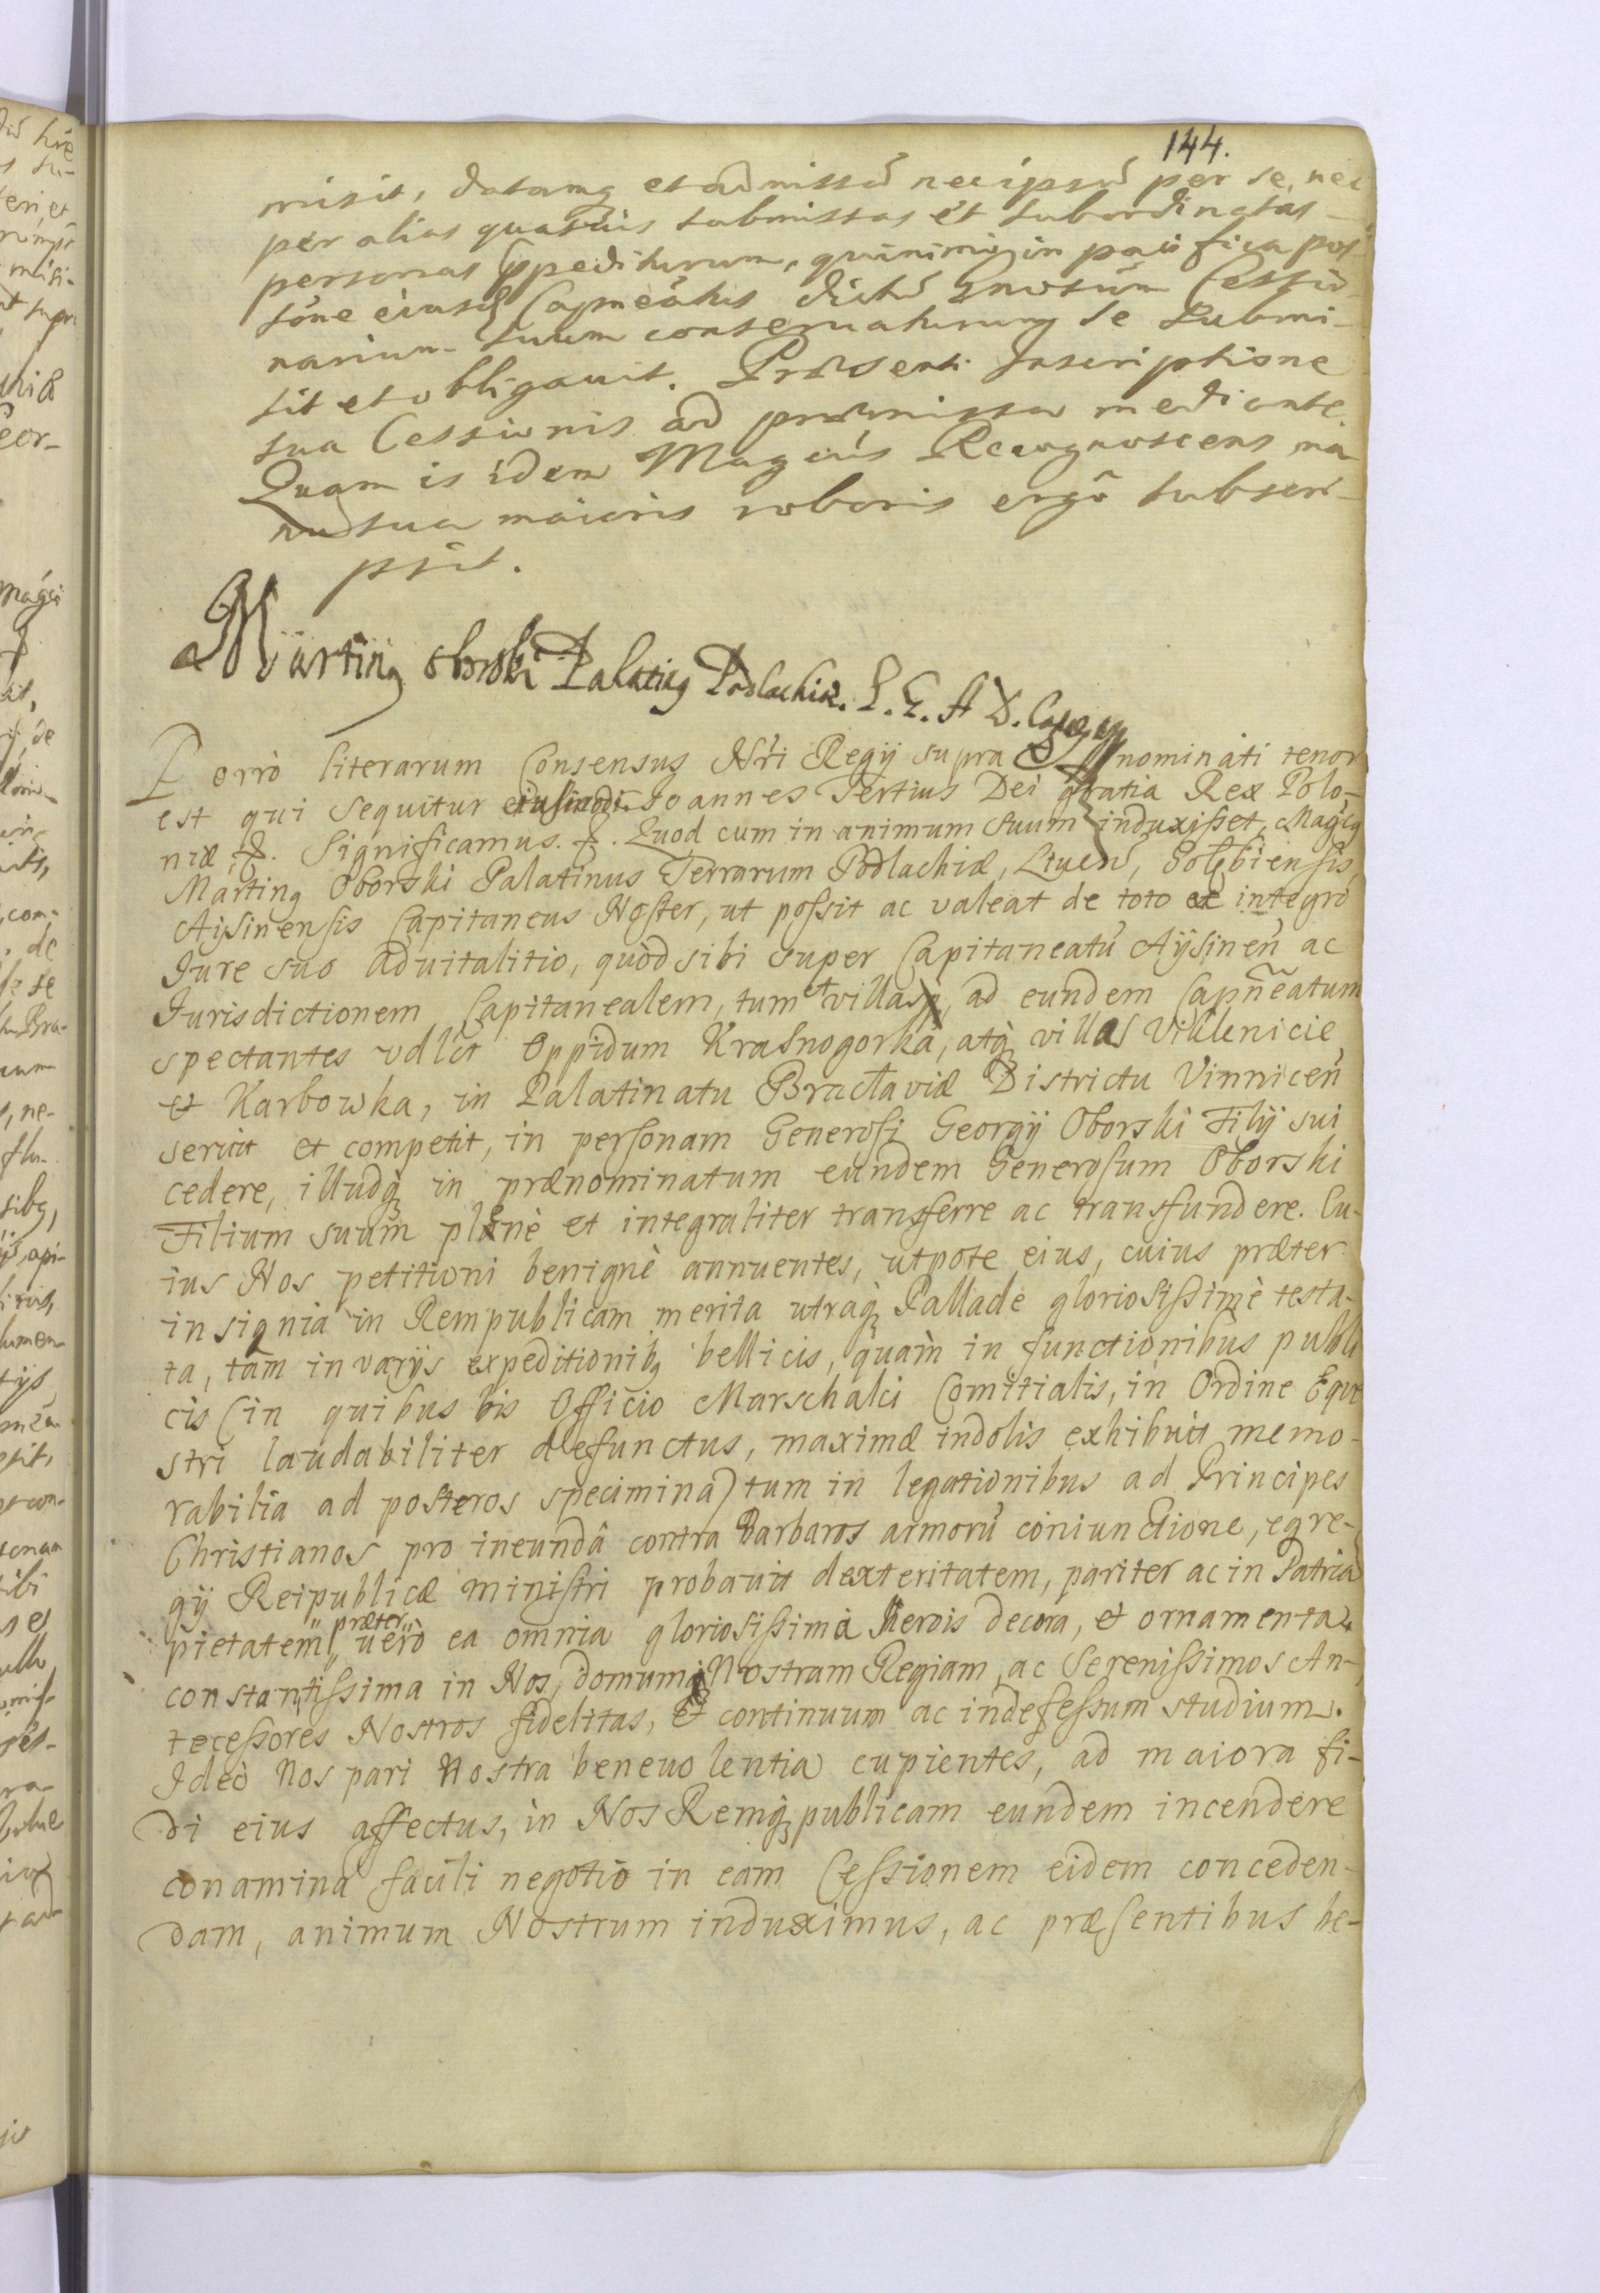 144.
misit, datamq et admissã nec ipsũ per se, nec
per alias quasvis submissas et subordinatas
personas impediturum, quinimo in pacifica pos-
sõne eiusd Capneatus dictũ Gnosum Cessio-
narium suum conservaturum se submi-
sit et obligavit. Præsenti Inscriptione
sua Cessionis ad præmissa mediante
Quam is idem Magcus Recognoscens ma-
nu sua maioris roboris ergò subscri-
psit.
Martinq Oborski Palatinq Podlachiæ. L. G. A S.
Porrò literarum Consensus Nri Regij supra nominati tenor
est qui sequitur eiusmodi Joannes Tertius Dei gratia Rex Polo-
niæ &. Significamus. &. Quod cum in animum suum induxisset, Magcq
Martinq Oborski Palatinus Terrarum Podlachiæ, Liven, Golębiensis,
Aysinensis Capitaneus Noster, ut possit ac valeat de toto et integro
Jure suo advitalitio, quòd sibi super Capitaneatũ Aysinen ac
Jurisdictionem Capitanealem, tum et villas, ad eundem Capneatum
spectantes vdlct Oppidum Krasnogorka, atq villas Villenicie
et Karbowka, in Palatinatu Bractaviæ Districtu Vinnicen
servit et competit, in personam Generosi Georgij Oborski Filij sui
cedere, illudq in prænominatum eundem Generosum Oborski
Filium suum plenè et integraliter transferre ac transfundere. Cu-
ius Nos petitioni benignè annuentes, utpote eius, cuius præter
insignia in Rempublicam merita utraq Pallade gloriosissimè testa-
ta, tam in varijs expeditionibq bellicis, quàm in functionibus publi
cis (in quibus bis Officio Marschalci Comitialis, in Ordine Eque
stri laudabiliter defunctus, maximæ indolis exhibuit memo-
rabilia ad posteros specimina) tum in legationibus ad Principes
Christianos pro ineundâ contra Barbaros armorũ coniunctione, egre-
gij Reipublicæ ministri probavit dexteritatem, pariter ac in Patria
pietatem, præter verò ea omnia gloriosissima Herois decora, et ornamenta
constantissima in Nos, domumq Nostram Regiam, ac Serenissimos An-
tecessores Nostros fidelitas, et continuum ac indefessum studium.
Ideò Nos pari Nostra benevolentia cupientes, ad maiora fi-
di eius affectus, in Nos Remq publicam eundem incendere
conamina facili negotio in eam Cessionem eidem conceden-
dam, animum Nostrum induximus, ac præsentibus be-